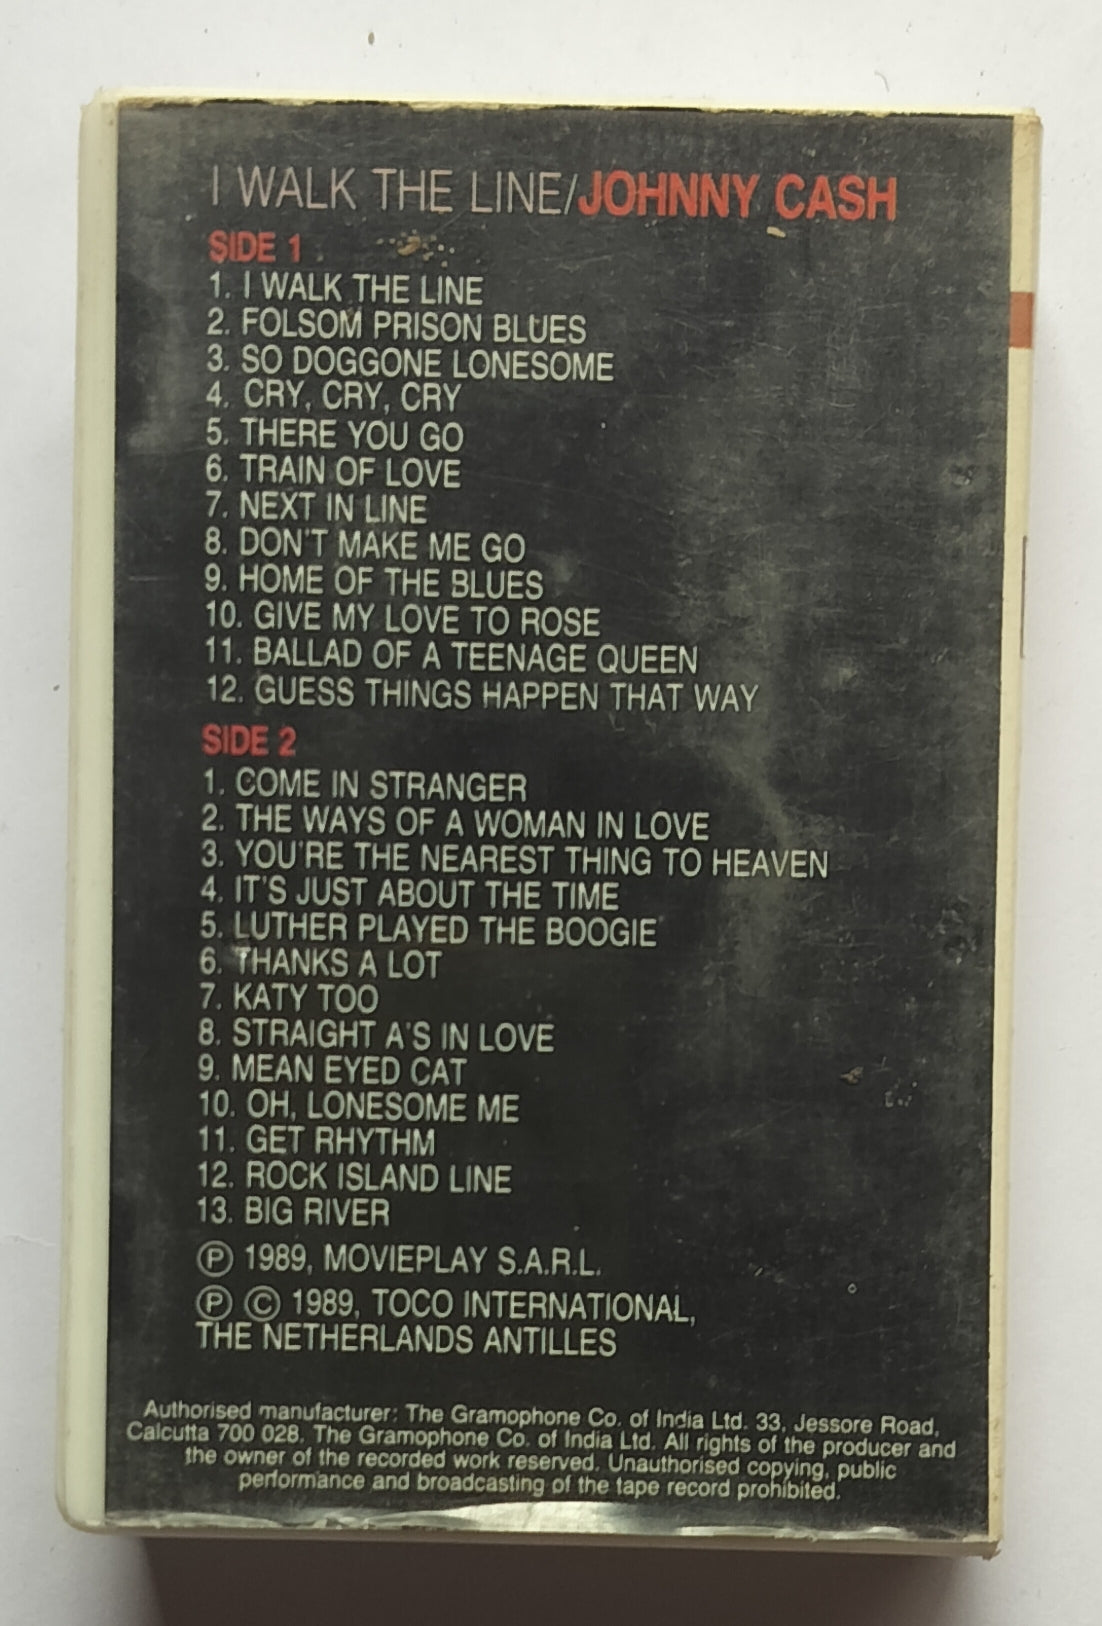 I WALK THE LINE/JOHNNY CASH
SIDE 1
1. I WALK THE LINE
2. FOLSOM PRISON BLUES
3. SO DOGGONE LONESOME
4. CRY, CRY, CRY
5. THERE YOU GO
6. TRAIN OF LOVE
7. NEXT IN LINE
8. DON'T MAKE ME GO
9. HOME OF THE BLUES
10. GIVE MY LOVE TO ROSE
11. BALLAD OF A TEENAGE QUEEN
12. GUESS THINGS HAPPEN THAT WAY
SIDE 2
1. COME IN STRANGER
2. THE WAYS OF A WOMAN IN LOVE
3. YOU'RE THE NEAREST THING TO HEAVEN
4. IT'S JUST ABOUT THE TIME
5. LUTHER PLAYED THE BOOGIE
6. THANKS A LOT
7. KATY TOO
8. STRAIGHT A'S IN LOVE
9. MEAN EYED CAT
10. OH, LONESOME ME
11. GET RHYTHM
12. ROCK ISLAND LINE
13. BIG RIVER
Ⓟ 1989, MOVIEPLAY S.A.R.L.
Ⓟ © 1989, TOCO INTERNATIONAL,
THE NETHERLANDS ANTILLES
Authorised manufacturer: The Gramophone Co. of India Ltd. 33, Jessore Road,
Calcutta 700 028. The Gramophone Co. of India Ltd. All rights of the producer and
the owner of the recorded work reserved. Unauthorised copying, public
performance and broadcasting of the tape record prohibited.